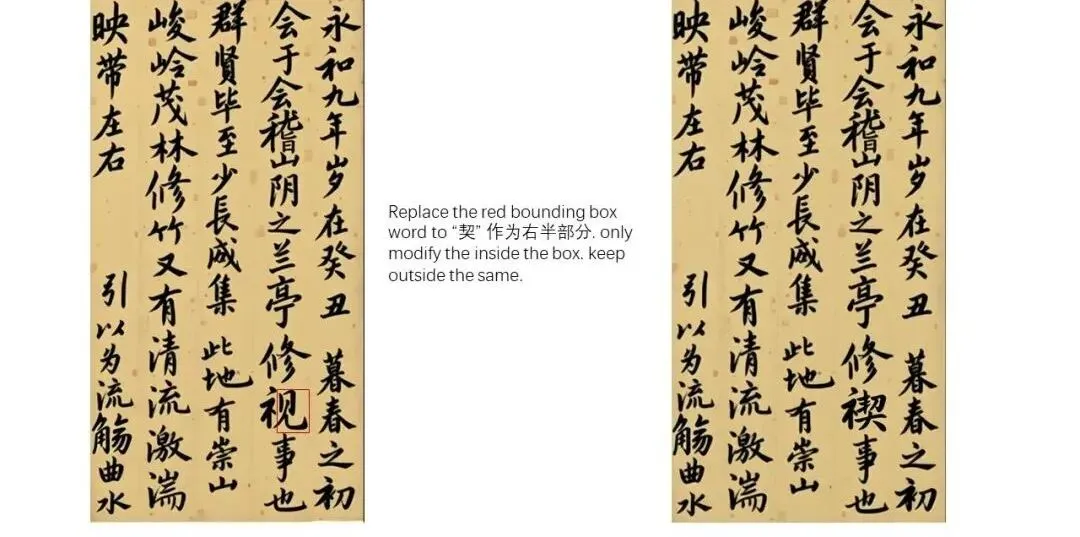 永和九年岁在癸丑 暮春之初
会于会稽山阴之兰亭 修视事也
群贤毕至少長咸集 此地有崇山
峻岭茂林修竹又有清流激湍
映带左右 引以为流觞曲水
Replace the red bounding box
word to “契” 作为右半部分. only
modify the inside the box. keep
outside the same.
永和九年岁在癸丑 暮春之初
会于会稽山阴之兰亭 修禊事也
群贤毕至少長咸集 此地有崇山
峻岭茂林修竹又有清流激湍
映带左右 引以为流觞曲水